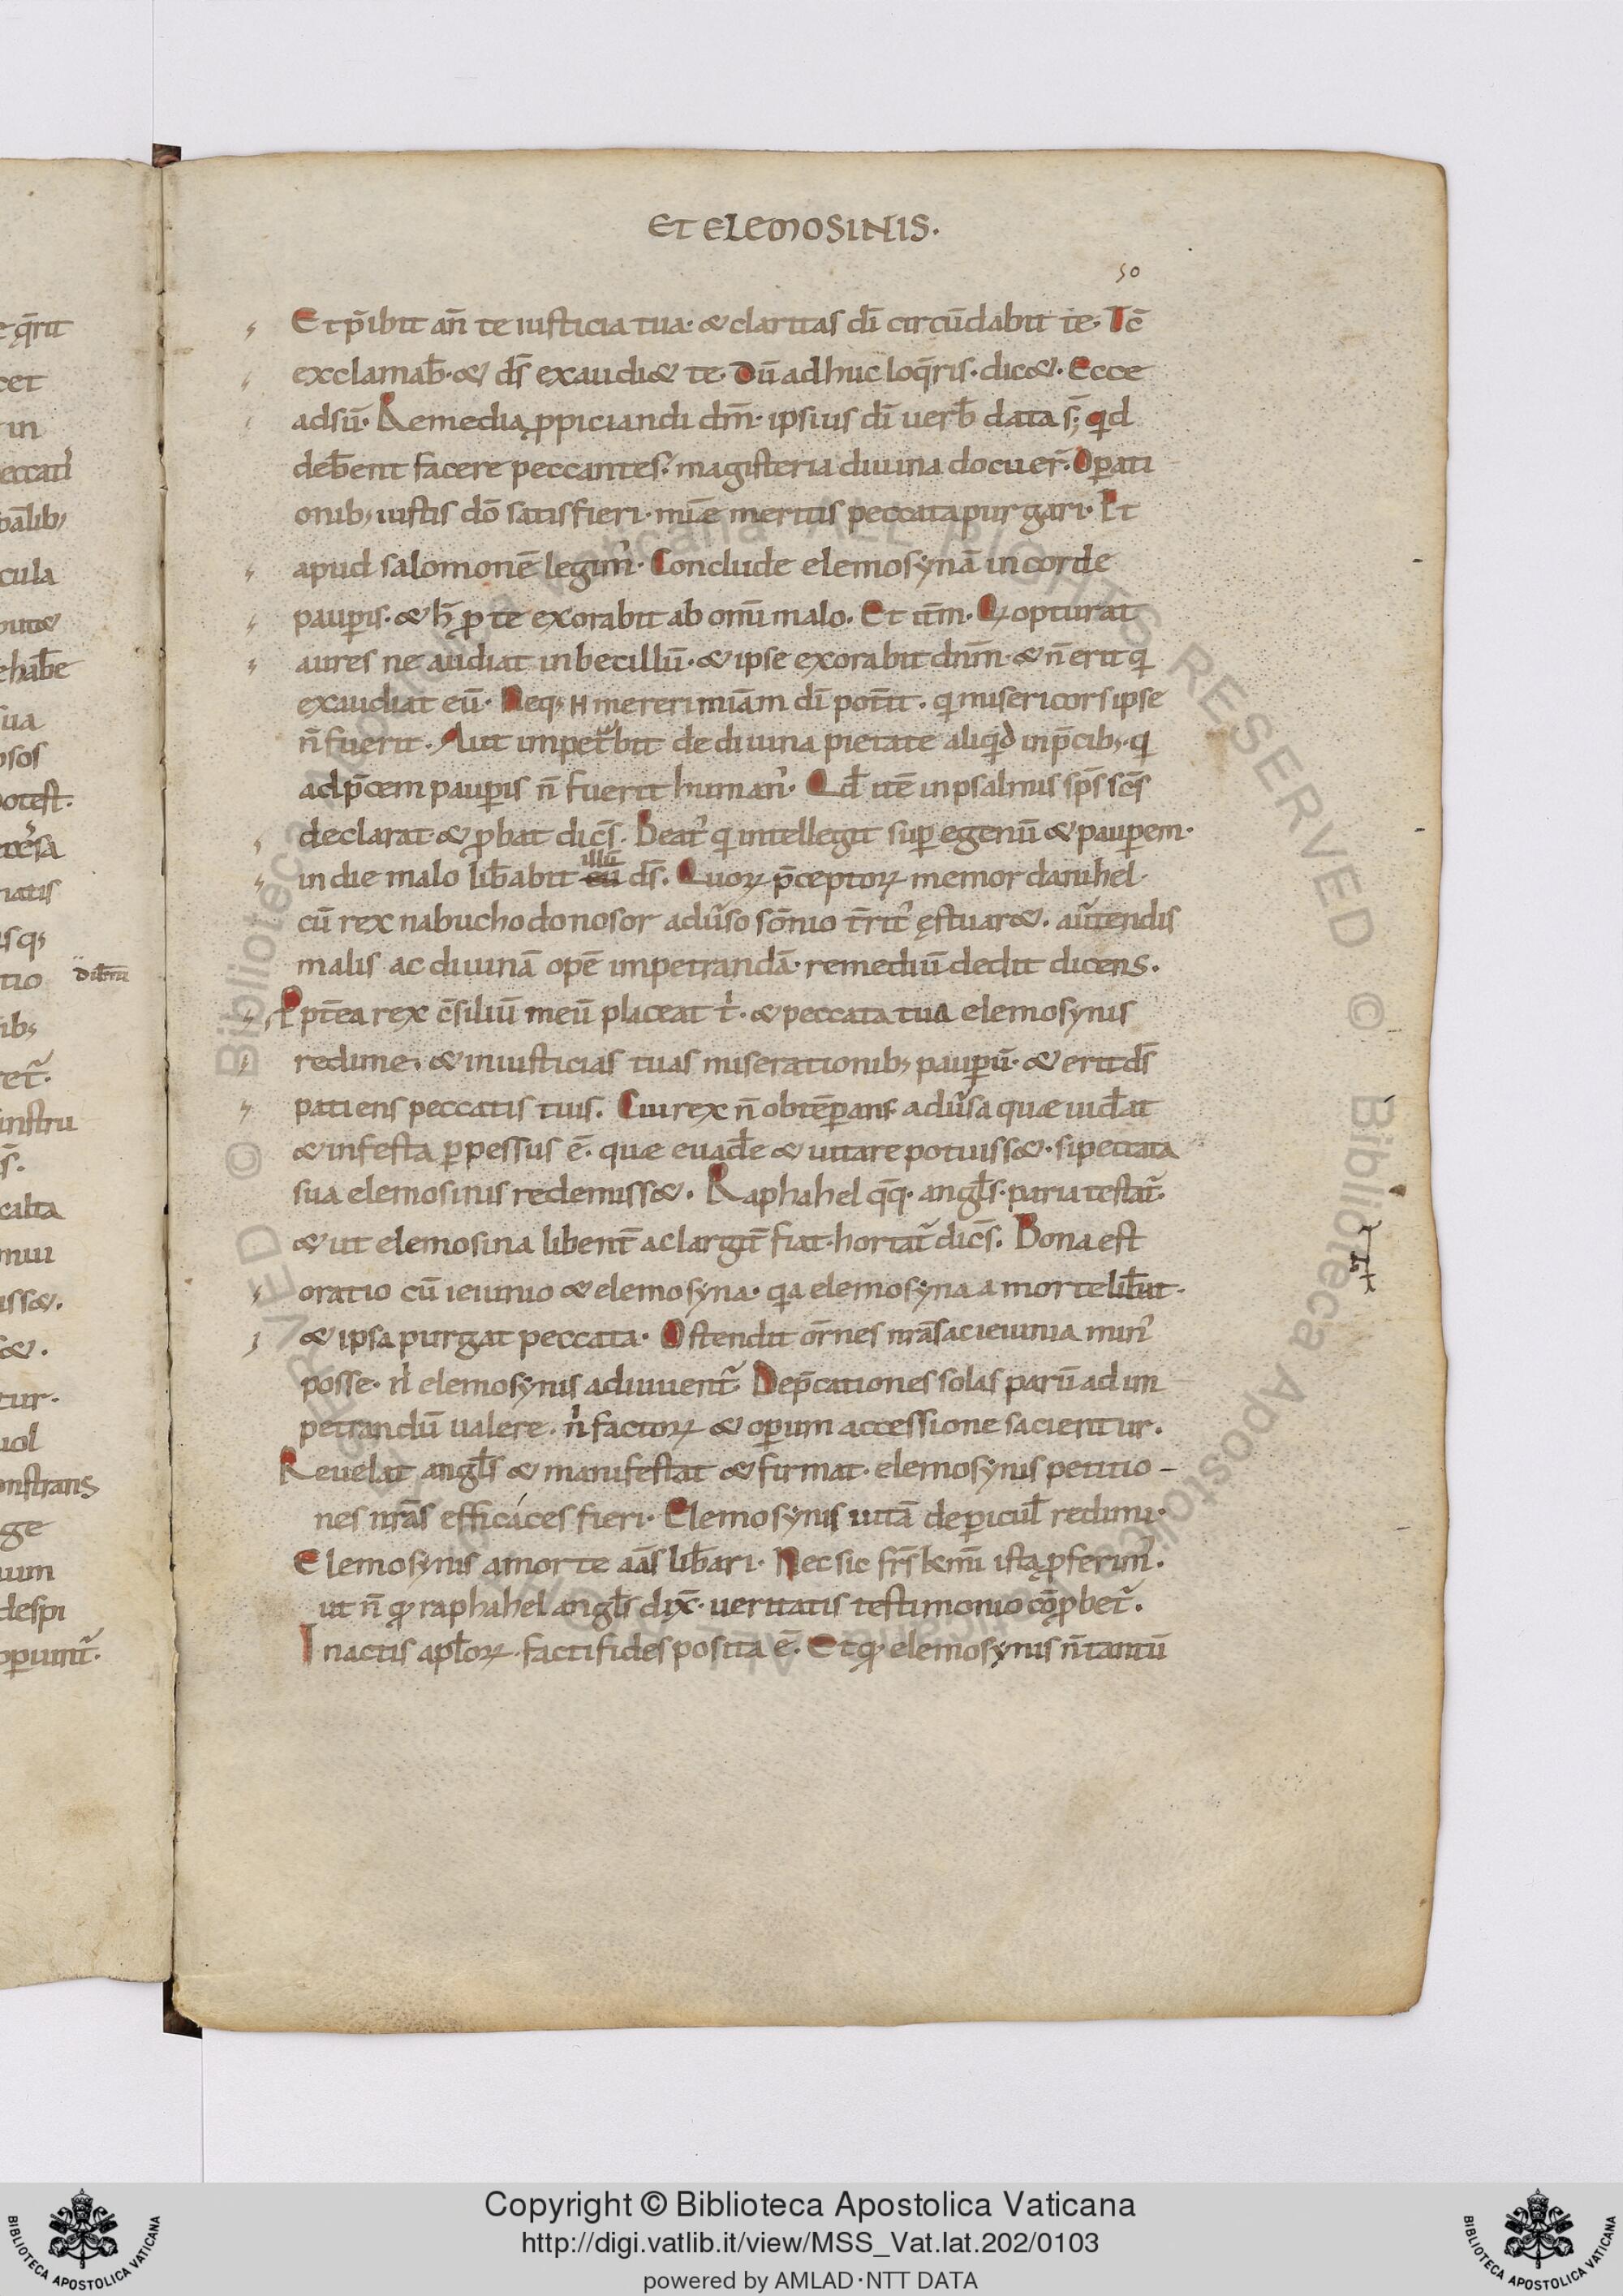 ET ELEMOSINIS.
50
Et p̄ibit an̄ te iusticia tua· & claritas dī circūdabit te· Tc̄
exclamab̄· & ds̄ exaudi& te· Dū adhuc loq̄ris· dic&· Ecce
adsū· Remedia ꝓpiciandi dm̄· ipsius dī uerb̄ data s̄; qid
deb̄ent facere peccantes· magisteria diuina docuer̄· Oꝑati
onib; iustis dō satisfieri· mīe meritis peccata purgari· Et
apud salomonē legim᾿· Conclude elemosynā in corde
pauꝑis· & h̄ ꝓ te exorabit ab omī malo. Et itm̄· Qi opturat
aures ne audiat inbecillū· & ipse exorabit dnm̄· & n̄ erit qi
exaudiat eū· Neq; H mereri miām dī pot̄it· qi misericors ipse
n̄ fuerit· Aut impetᷓbit de diuina pietate aliqid in p̄cib;· qi
ad p̄cem pauꝑis n̄ fuerit human᾿· Qd̄ itē in psalmis sps̄ scs̄
declarat· & ꝓbat dic̄s· Beat᾿ qi intellegit suꝑ egenū & pauꝑem·
in die malo lib̄abit eū illū ds̄. Quoꝝ p̄ceptoꝝ memor danihel·
cū rex nabuchodonosor adūso sōnio t̄rit᾿ ęstuar&· auᷓtendis
malis ac diuinā opē impetrandā· remediū dedit dicens.
Ppt̄ea rex c̄siliū meū placeat t᾿· & peccata tua elemosynis
redime· & iniusticias tuas miserationib; pauꝑū· & erit ds̄
patiens peccatis tuis. Cui rex n̄ obtēꝑans adūsa quæ uid̄at
& infesta ꝑpessus ē· quæ euad̄e & uitare potuiss&· si peccata
sua elemosinis redemiss&. Raphahel qq̄· angls̄· paria testatᷓ·
& ut elemosina libent̄ ac largit̄ fiat· hortatᷓ dic̄s. Bona est
oratio cū ieiunio & elemosyna· qia elemosyna a morte lib̄at·
& ipsa purgat peccata· Ostendit or̄nes nr̄as ac ieiunia min᾿
posse· n᾿ elemosynis adiuuentᷓ· Dep̄cationes solas parū ad im
petrandū ualere· n᾿ factoꝝ & oꝑum accessione sacientur.
Reuelat angls̄ & manifestat & firmat· elemosynis petitio-
nes nr̄as efficaces fieri· Elemosynis uitā de ꝑicul̄ redimi·
Elemosynis a morte aās lib̄ari· Nec sic fr̄s kmī ista ꝓferim᾿·
ut n̄ qđ raphahel angls̄ dix̄· ueritatis testimonio cōꝓbetᷓ.
In actis apl̄oꝝ· facti fides posita ē. Et qđ elemosynis n̄ tantū
Copyright © Biblioteca Apostolica Vaticana
http://digi.vatlib.it/view/MSS_Vat.lat.202/0103
powered by AMLAD·NTT DATA